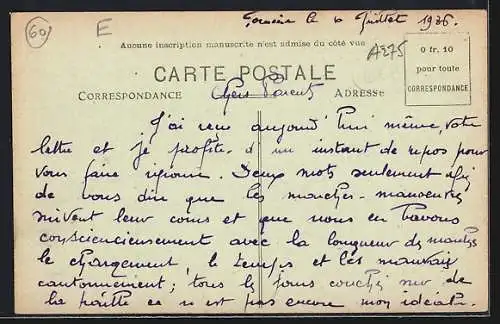 60
E
le 6 Juillet 1936.
Aucune inscription manuscrite n'est admise du côté vue
A275
0 fr. 10
pour toute
CORRESPONDANCE
CARTE POSTALE
CORRESPONDANCE
ADRESSE
Chers Parents
J'ai reçu aujourd'hui même, votre
lettre et je profite d'un instant de repos pour
vous faire réponse. Deux mots seulement afin
de vous dire que les marches-manœuvres
suivent leur cours et que nous en bavons
consciencieusement avec la longueur des marches
le chargement, le temps et les mauvais
cantonnements; tous les jours coucher sur de
la paille ce n'est pas encore mon idéal.